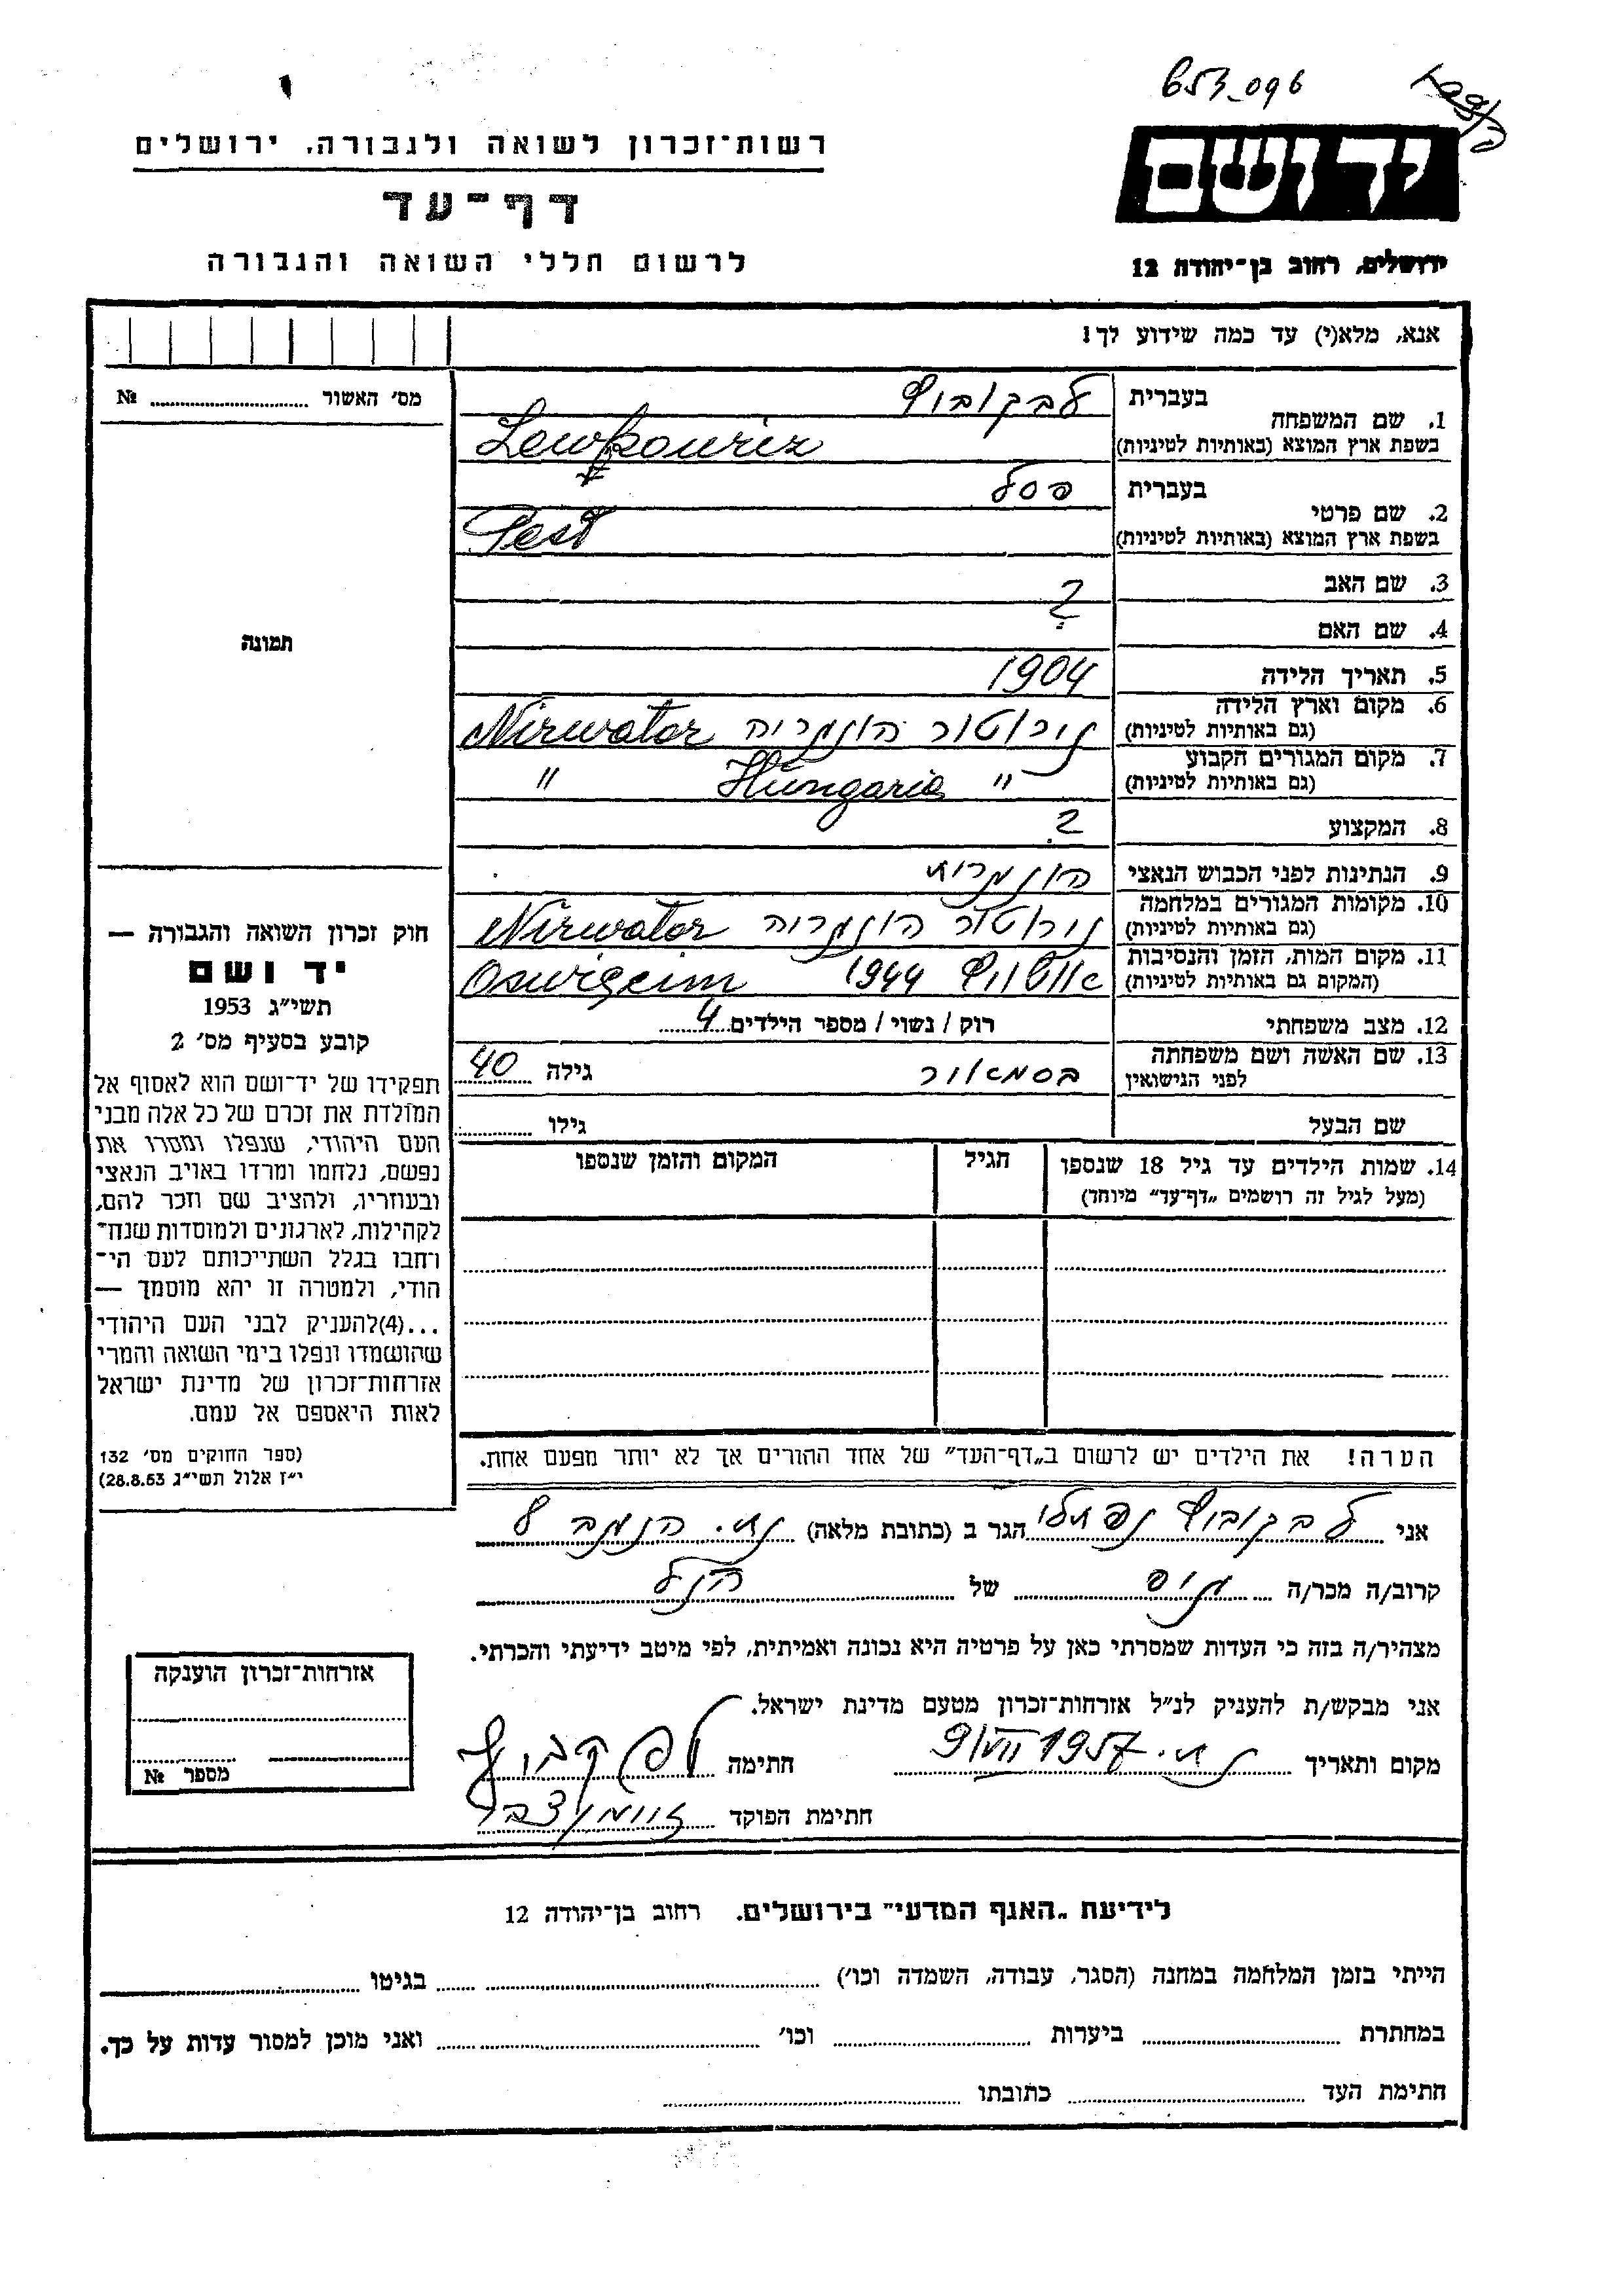 653_096
רשות־זכרון לשואה ולגבורה, ירושלים
דף־עד
לרשום חללי השואה והגבורה
יד ושם
ירושלים, רחוב בן־יהודה 12
אנא, מלא(י) עד כמה שידוע לך!
מס׳ האשור № 
1. שם המשפחה
בעברית לבקוביץ
בשפת ארץ המוצא (באותיות לטיניות) Lewkowicz
2. שם פרטי
בעברית פסל
בשפת ארץ המוצא (באותיות לטיניות) Pesl
3. שם האב ?
4. שם האם
5. תאריך הלידה 1904
6. מקום וארץ הלידה
(גם באותיות לטיניות) נירוטור הונגריה Nirwator
7. מקום המגורים הקבוע
(גם באותיות לטיניות) " Hungaria "
8. המקצוע ?
9. הנתינות לפני הכבוש הנאצי הונגרית
10. מקומות המגורים במלחמה
(גם באותיות לטיניות) נירוטור הונגריה Nirwator
11. מקום המות, הזמן והנסיבות
(המקום גם באותיות לטיניות) 1944 Oswigcim
12. מצב משפחתי רוק / נשוי / מספר הילדים 4
13. שם האשה ושם משפחתה
לפני הנישואין גילה 40
שם הבעל גילו
14. שמות הילדים עד גיל 18 שנספו
(מעל לגיל זה רושמים „דף־עד״ מיוחד)
הגיל
המקום והזמן שנספו
הערה! את הילדים יש לרשום ב„דף־העד״ של אחד ההורים אך לא יותר מפעם אחת.
תמונה
חוק זכרון השואה והגבורה —
יד ושם
תשי״ג 1953
קובע בסעיף מס׳ 2
תפקידו של יד־ושם הוא לאסוף אל
המולדת את זכרם של כל אלה מבני
העם היהודי, שנפלו ומסרו את
נפשם, נלחמו ומרדו באויב הנאצי
ובעוזריו, ולהציב שם וזכר להם,
לקהילות, לארגונים ולמוסדות שנח־
רחבו בגלל השתייכותם לעם הי־
הודי, ולמטרה זו יהא מוסמך —
...(4)להעניק לבני העם היהודי
שהושמדו ונפלו בימי השואה והמרי
אזרחות־זכרון של מדינת ישראל
לאות היאספם אל עמם.
(ספר החוקים מס׳ 132
י״ז אלול תשי״ג 28.8.53)
אני לבקוביץ נפתלי הגר ב (כתובת מלאה)
קרוב/ה מכר/ה גיס של הנ״ל
מצהיר/ה בזה כי העדות שמסרתי כאן על פרטיה היא נכונה ואמיתית, לפי מיטב ידיעתי והכרתי.
אני מבקש/ת להעניק לנ״ל אזרחות־זכרון מטעם מדינת ישראל.
מקום ותאריך 9/VII 1957 חתימה
חתימת הפוקד
אזרחות־זכרון הוענקה
מספר №
לידיעת „האגף המדעי״ בירושלים. רחוב בן־יהודה 12
הייתי בזמן המלחמה במחנה (הסגר, עבודה, השמדה וכו׳) בגיטו
במחתרת ביערות וכו׳ ואני מוכן למסור עדות על כך.
חתימת העד כתובתו